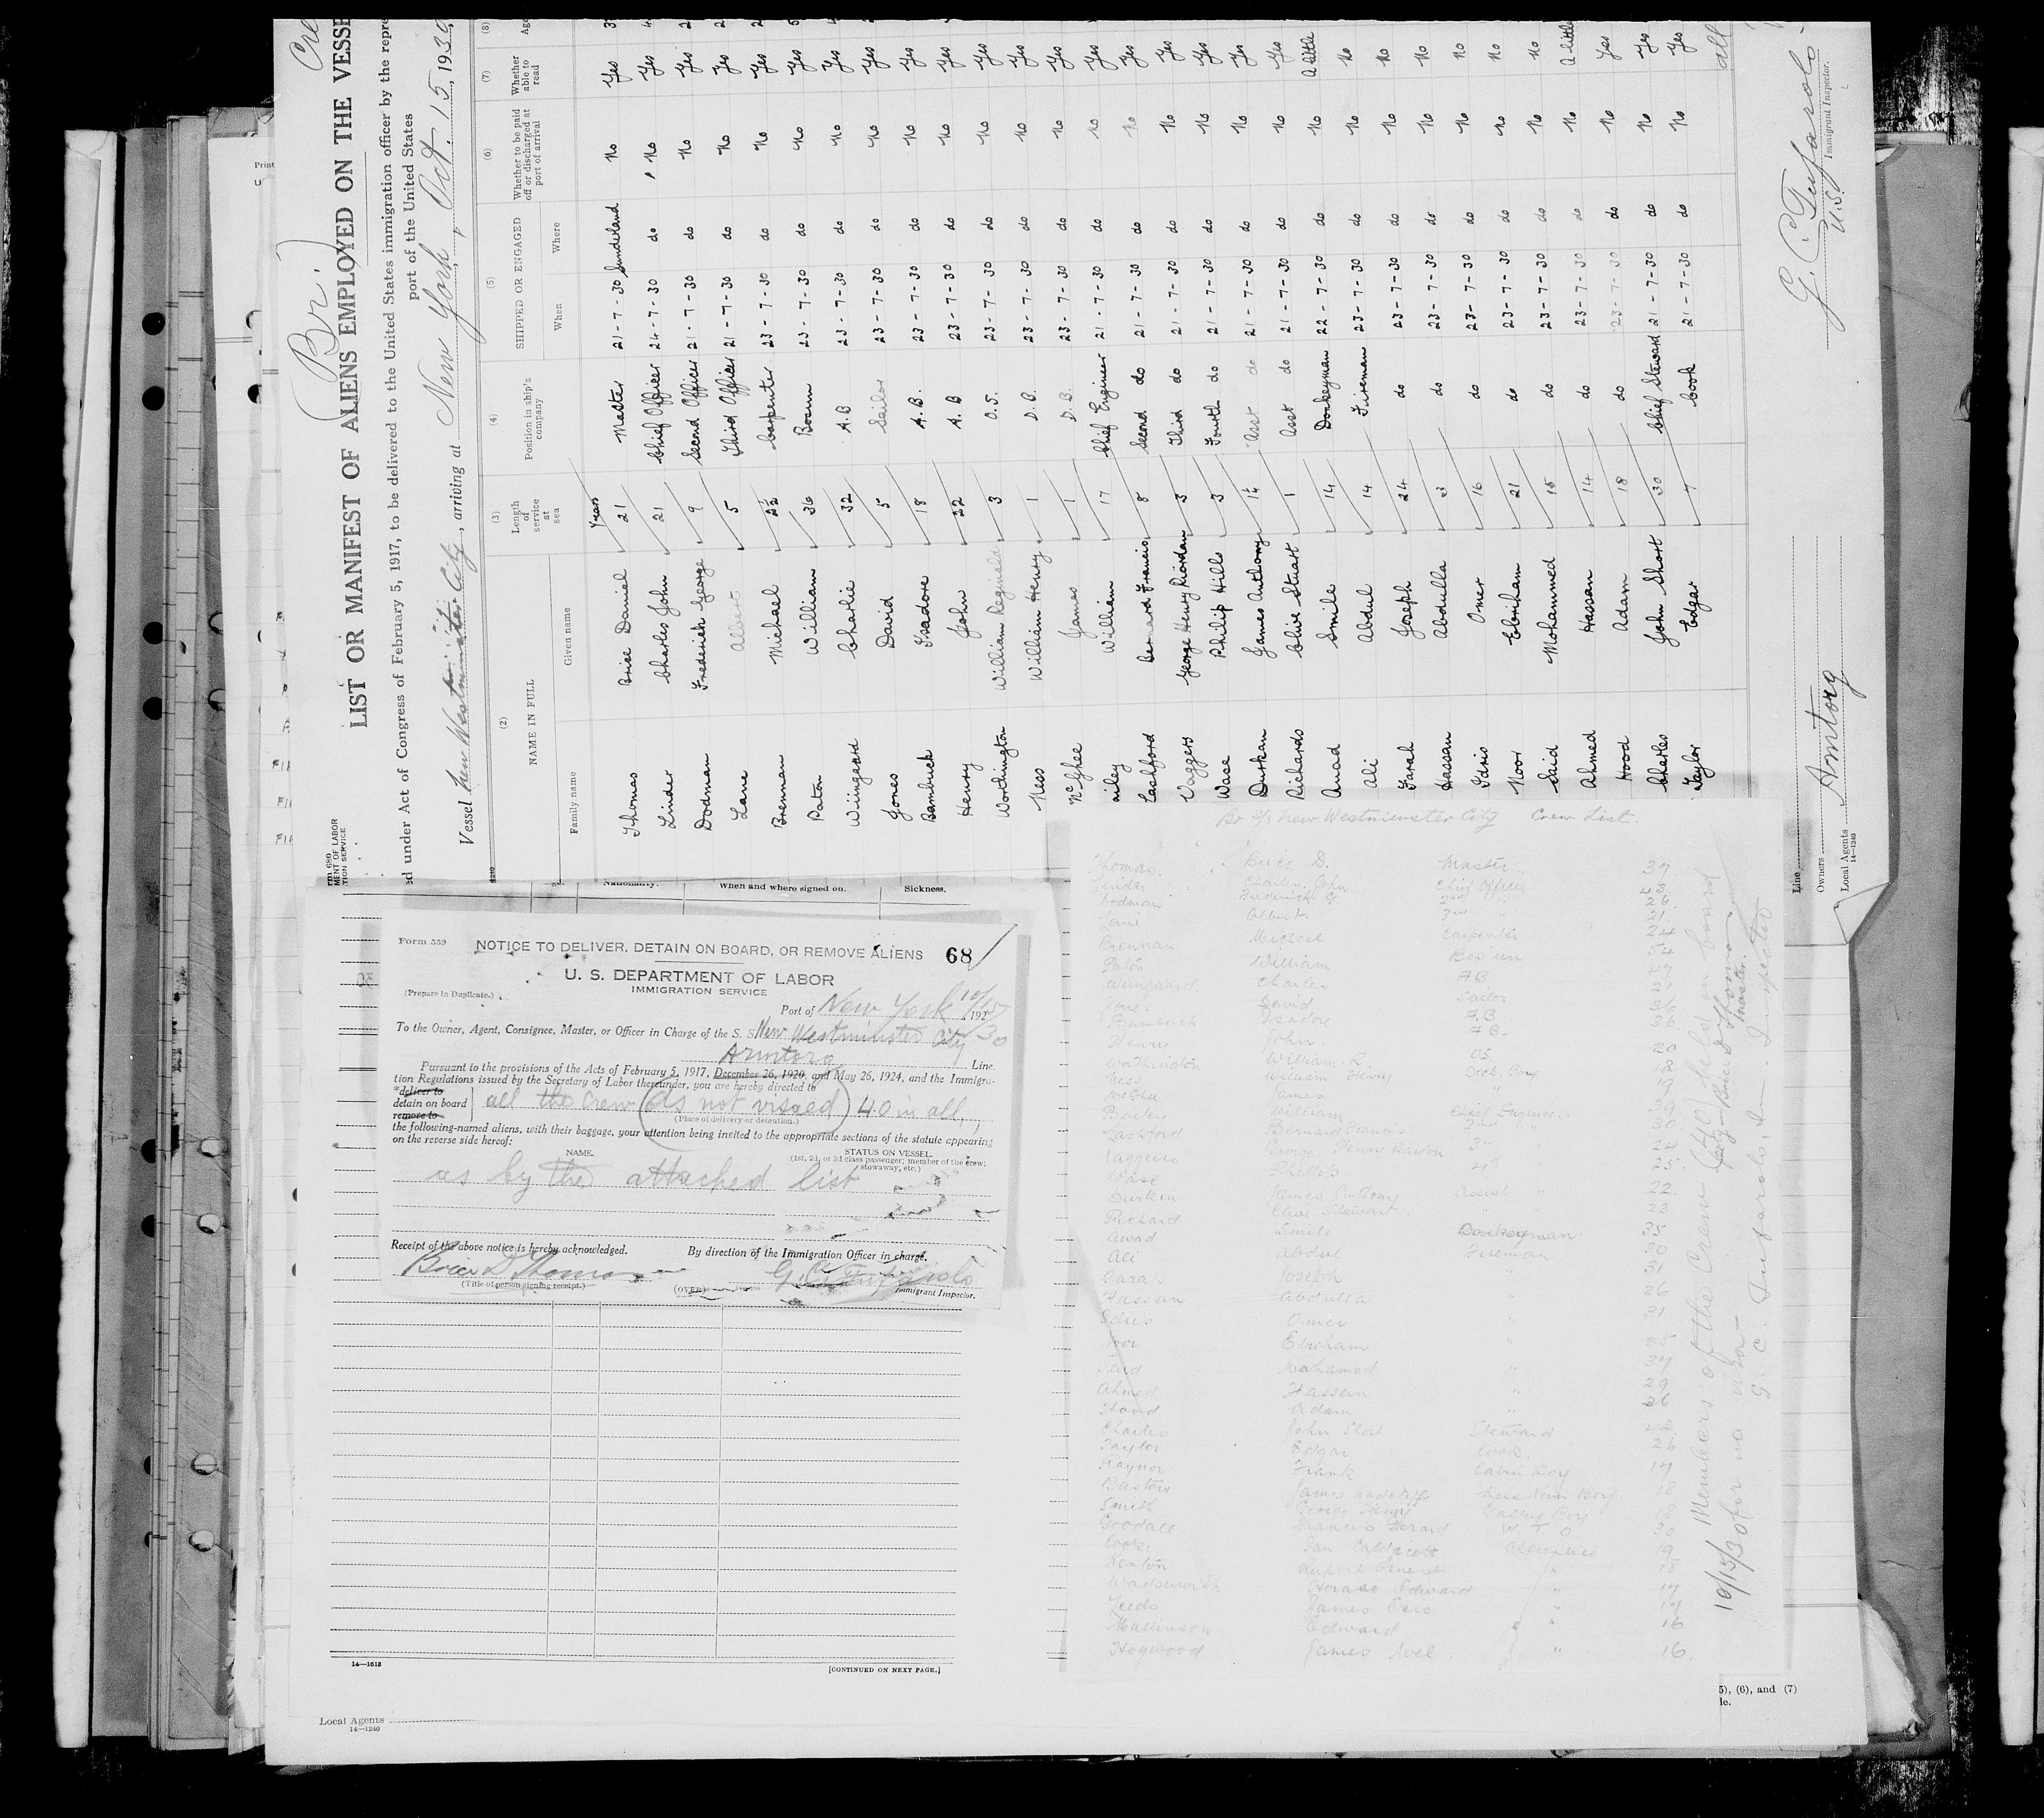 (Br.)
LIST OR MANIFEST OF ALIENS EMPLOYED ON THE VESSE
ed under Act of Congress of February 5, 1917, to be delivered to the United States immigration officer by the repre
port of the United States
Vessel New Westminster City, arriving at New York, Oct. 15, 1930
(2) (3) (4) (5) (6) (7) (8)
NAME IN FULL
Family name Given name
Length of service at sea
Position in ship's company
SHIPPED OR ENGAGED
When Where
Whether to be paid off or discharged at port of arrival
Whether able to read
Age
Years
Thomas Brice Daniel 21 Master 21-7-30 Sunderland No Yes
Linder Charles John 21 Chief Officer 24-7-30 do No Yes
Dodman Frederick George 9 Second Officer 21-7-30 do No Yes
Lane Albert 5 Third Officer 21-7-30 do No Yes
Brennan Michael 2½ Carpenter 23-7-30 do No Yes
Paton William 36 Bosun 23-7-30 do No Yes
Wiingaard Charlie 32 A.B 23-7-30 do No Yes
Jones David 5 Sailor 23-7-30 do No Yes
Bambuck Isadore 18 A.B. 23-7-30 do No Yes
Henry John 22 A.B 23-7-30 do No Yes
Worthington William Reginald 3 O.S. 23-7-30 do No Yes
Ness William Henry 1 D.B. 23-7-30 do No Yes
McGhee James 1 D.B. 23-7-30 do No Yes
ailey William 17 Chief Engineer 21-7-30 do No Yes
Lashford Bernard Francis 8 Second do 21-7-30 do No Yes
Vaggers George Henry Riordan 3 Third do 21-7-30 do No Yes
Wase Philip Hills 3 Fourth do 21-7-30 do No Yes
Durkan James Anthony 1¼ Asst do 21-7-30 do No Yes
Richards Clive Stuart 1 Asst do 21-7-30 do No Yes
Awad Smile 14 Donkeyman 22-7-30 do No A little
Ali Abdul 14 Fireman 23-7-30 do No No
Farah Joseph 24 do 23-7-30 do No No
Hassan Abdulla 3 do 23-7-30 do No No
Idris Omer 16 do 23-7-30 do No No
Noor Ebriham 21 do 23-7-30 do No No
Said Mohammed 15 do 23-7-30 do No No
Ahmed Hassan 14 do 23-7-30 do No A little
Hood Adam 18 do 23-7-30 do No Yes
Charles John Short 30 Chief Steward 21-7-30 do No Yes
Taylor Edgar 7 Cook 21-7-30 do No Yes
all
G. C. Tufarolo
U.S. Immigrant Inspector.
Line
Owners Amtorg
Local Agents
14—1240
MENT OF LABOR
TION SERVICE
Print
Nationality. When and where signed on. Sickness.
Form 559
NOTICE TO DELIVER, DETAIN ON BOARD, OR REMOVE ALIENS 68
U. S. DEPARTMENT OF LABOR
IMMIGRATION SERVICE
(Prepare in Duplicate.)
Port of New York 10/15 192 30
To the Owner, Agent, Consignee, Master, or Officer in Charge of the S. S. New Westminster City
Amtorg Line.
Pursuant to the provisions of the Acts of February 5, 1917, December 26, 1920, and May 26, 1924, and the Immigra-
tion Regulations issued by the Secretary of Labor thereunder, you are hereby directed to
*deliver to
detain on board
remove to
all the Crew (as not visaed) 40 in all
(Place of delivery or detention.)
the following-named aliens, with their baggage, your attention being invited to the appropriate sections of the statute appearing
on the reverse side hereof:
NAME. STATUS ON VESSEL.
(1st, 2d, or 3d class passenger; member of the crew;
stowaway, etc.)
as by the attached list
Receipt of the above notice is hereby acknowledged. By direction of the Immigration Officer in charge.
Brice D Thomas G. C. Tufarolo
(Title of person signing receipt.) (OVER) Immigrant Inspector.
Br S/S New Westminster City Crew List.
Thomas Brice D. Master 37
Linder Charles John Chief Officer
Dodman Frederick G. 2nd " 26
Lane Albert. 3rd " 21
Brennan Michael Carpenter 24
Paton William Bosun 54
Charles A B. 47
Jones David Sailor 21
Isadore A B
Henry John A B.
William R. O S 20
Ness William Henry Deck Boy 18
James 19
William Chief Engineer 39
Lashford Bernard Francis 2nd 30
Vaggers George Henry Riordan 3rd 24
Wase Philip 4th 25
Durkin James Anthony Assist " 22
Richard Clive Stewart 23
Awad Smile Donkeyman 38
Ali Abdul Fireman 30
Farah Joseph " 31
Hassan Abdulla " 26
Idris Omer " 31
Noor Ebriham " 35
Said Mahamed " 37
Ahmed Hassan " 29
Hood Adam " 26
Charles John Short Steward
Taylor Edgar Cook 26
Raynor Frank Cabin Boy 17
Bastow James Mess Room Boy 18
Smith George Henry Galley Boy 18
Goodall Francis Gerard W T O. 30
Cook Ian Apprentice 19
Kenton Rupert Ernest " 18
Wadsworth Horace Edward " 17
Leeds James Eric " 17
Mallinson Edward " 16
Hogwood James Noel " 16
10/15/30 Members of the Crew (40) held on board
for no visa
Brice D Thomas
Master.
G. C. Tufarolo, Im. Inspector
14—1613
[CONTINUED ON NEXT PAGE.]
Local Agents
14—1240
5), (6), and (7)
le.